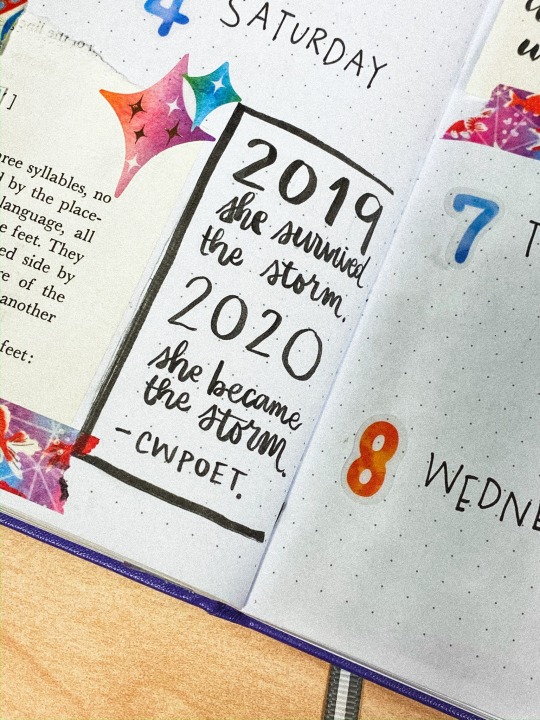 4 SATURDAY
]
ree syllables, no
d by the place-
language, all
e feet. They
ed side by
re of the
another
feet:
2019
she survived
the storm.
2020
she became
the storm.
- CWPOET.
7 T
8 WEDNE